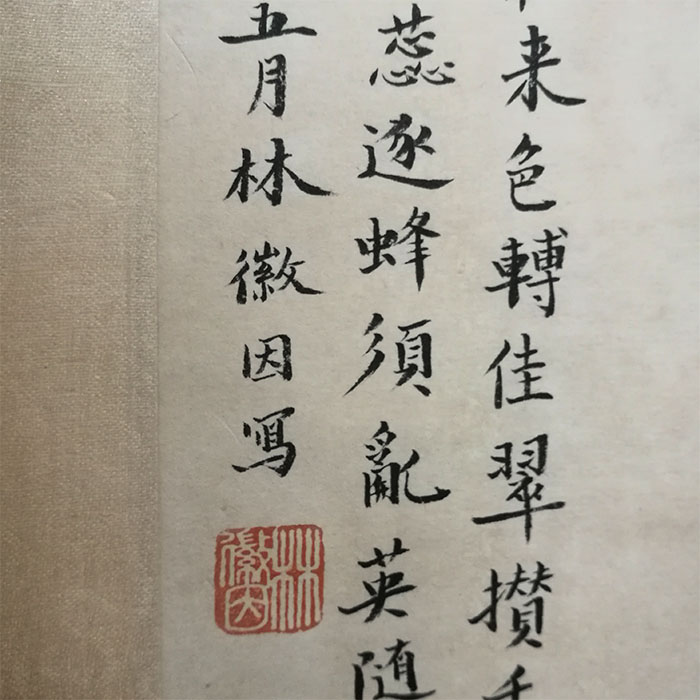 来色轉佳翠攢
蕊逐蜂須亂英随
五月林徽因寫
林徽因